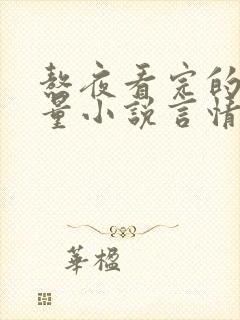 熬夜看完的
量小说言情
華楹